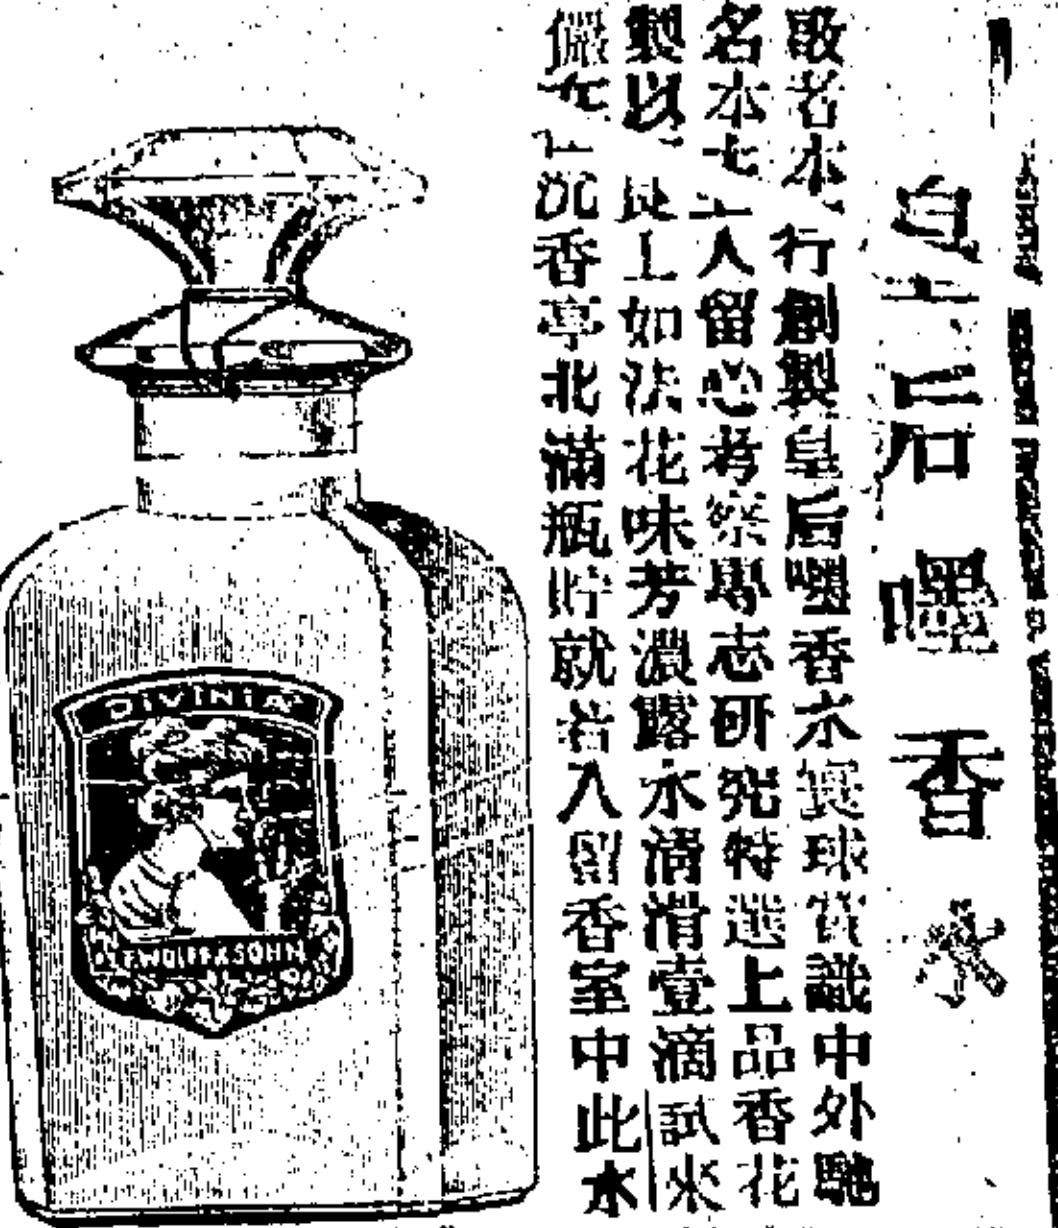 皇后嘿香水
敬者本行創製皇后嘿香水寰球賞識中外馳
名本主人留心考察專志研究特選上品香花
製以上如法花味芳濃露水清滑壹滴試來
儼在沉香亭北滿瓶貯就若入留香室中此水
DIVINIA
F.WOLFF&SOHN